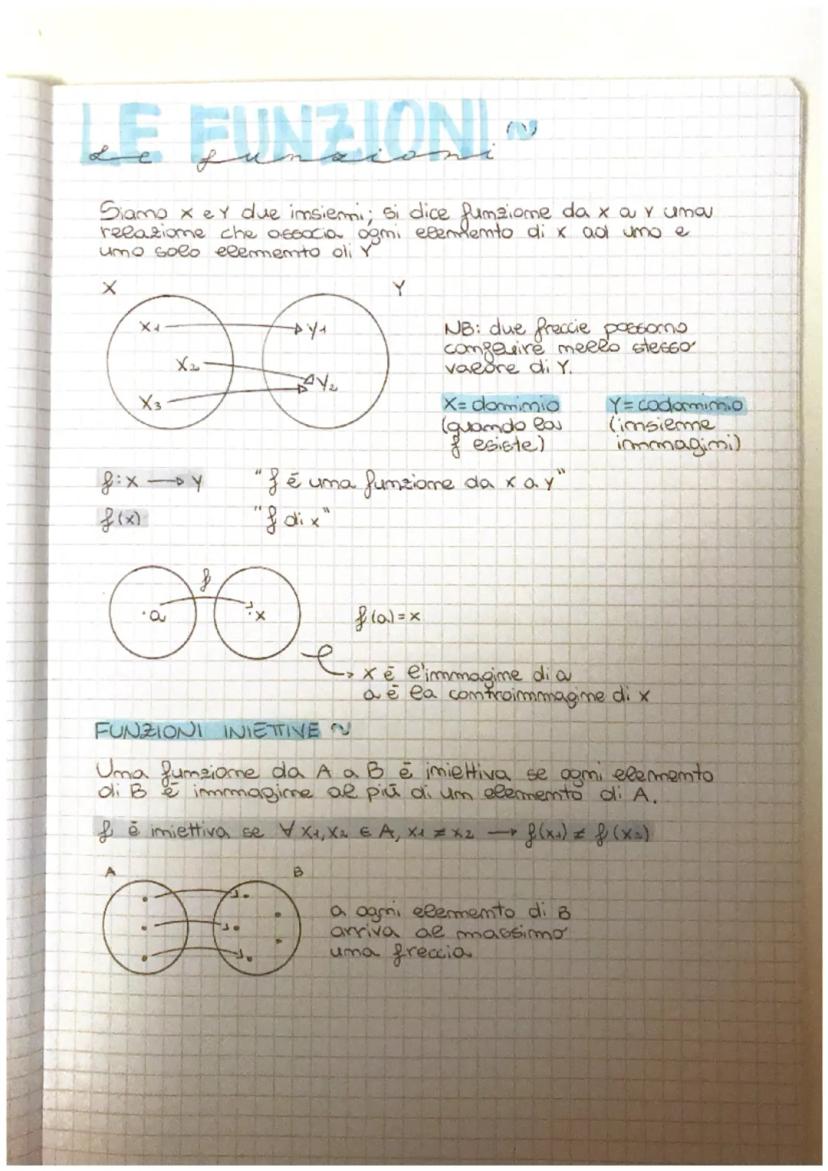 LE FUNZIONI ~
Le funzioni
Siano X e Y due insiemi; si dice funzione da X a Y una
relazione che associa ogni elemento di X ad uno e
uno solo elemento di Y
X
Y
X1
Y1
X2
Y2
X3
NB: due freccie possono
confluire nello stesso
valore di Y.
X = dominio
(quando la
f esiste)
Y = codominio
(insieme
immagini)
f: X → Y "f é una funzione da X a Y"
f(x) "f di x"
f
a
x
f(a) = x
x é l'immagine di a
a é la controimmagine di x
FUNZIONI INIETTIVE ~
Una funzione da A a B é iniettiva se ogni elemento
di B é immagine al piú di un elemento di A.
f é iniettiva se ∀ x1, x2 ∈ A, x1 ≠ x2 → f(x1) ≠ f(x2)
A
B
a ogni elemento di B
arriva al massimo
una freccia